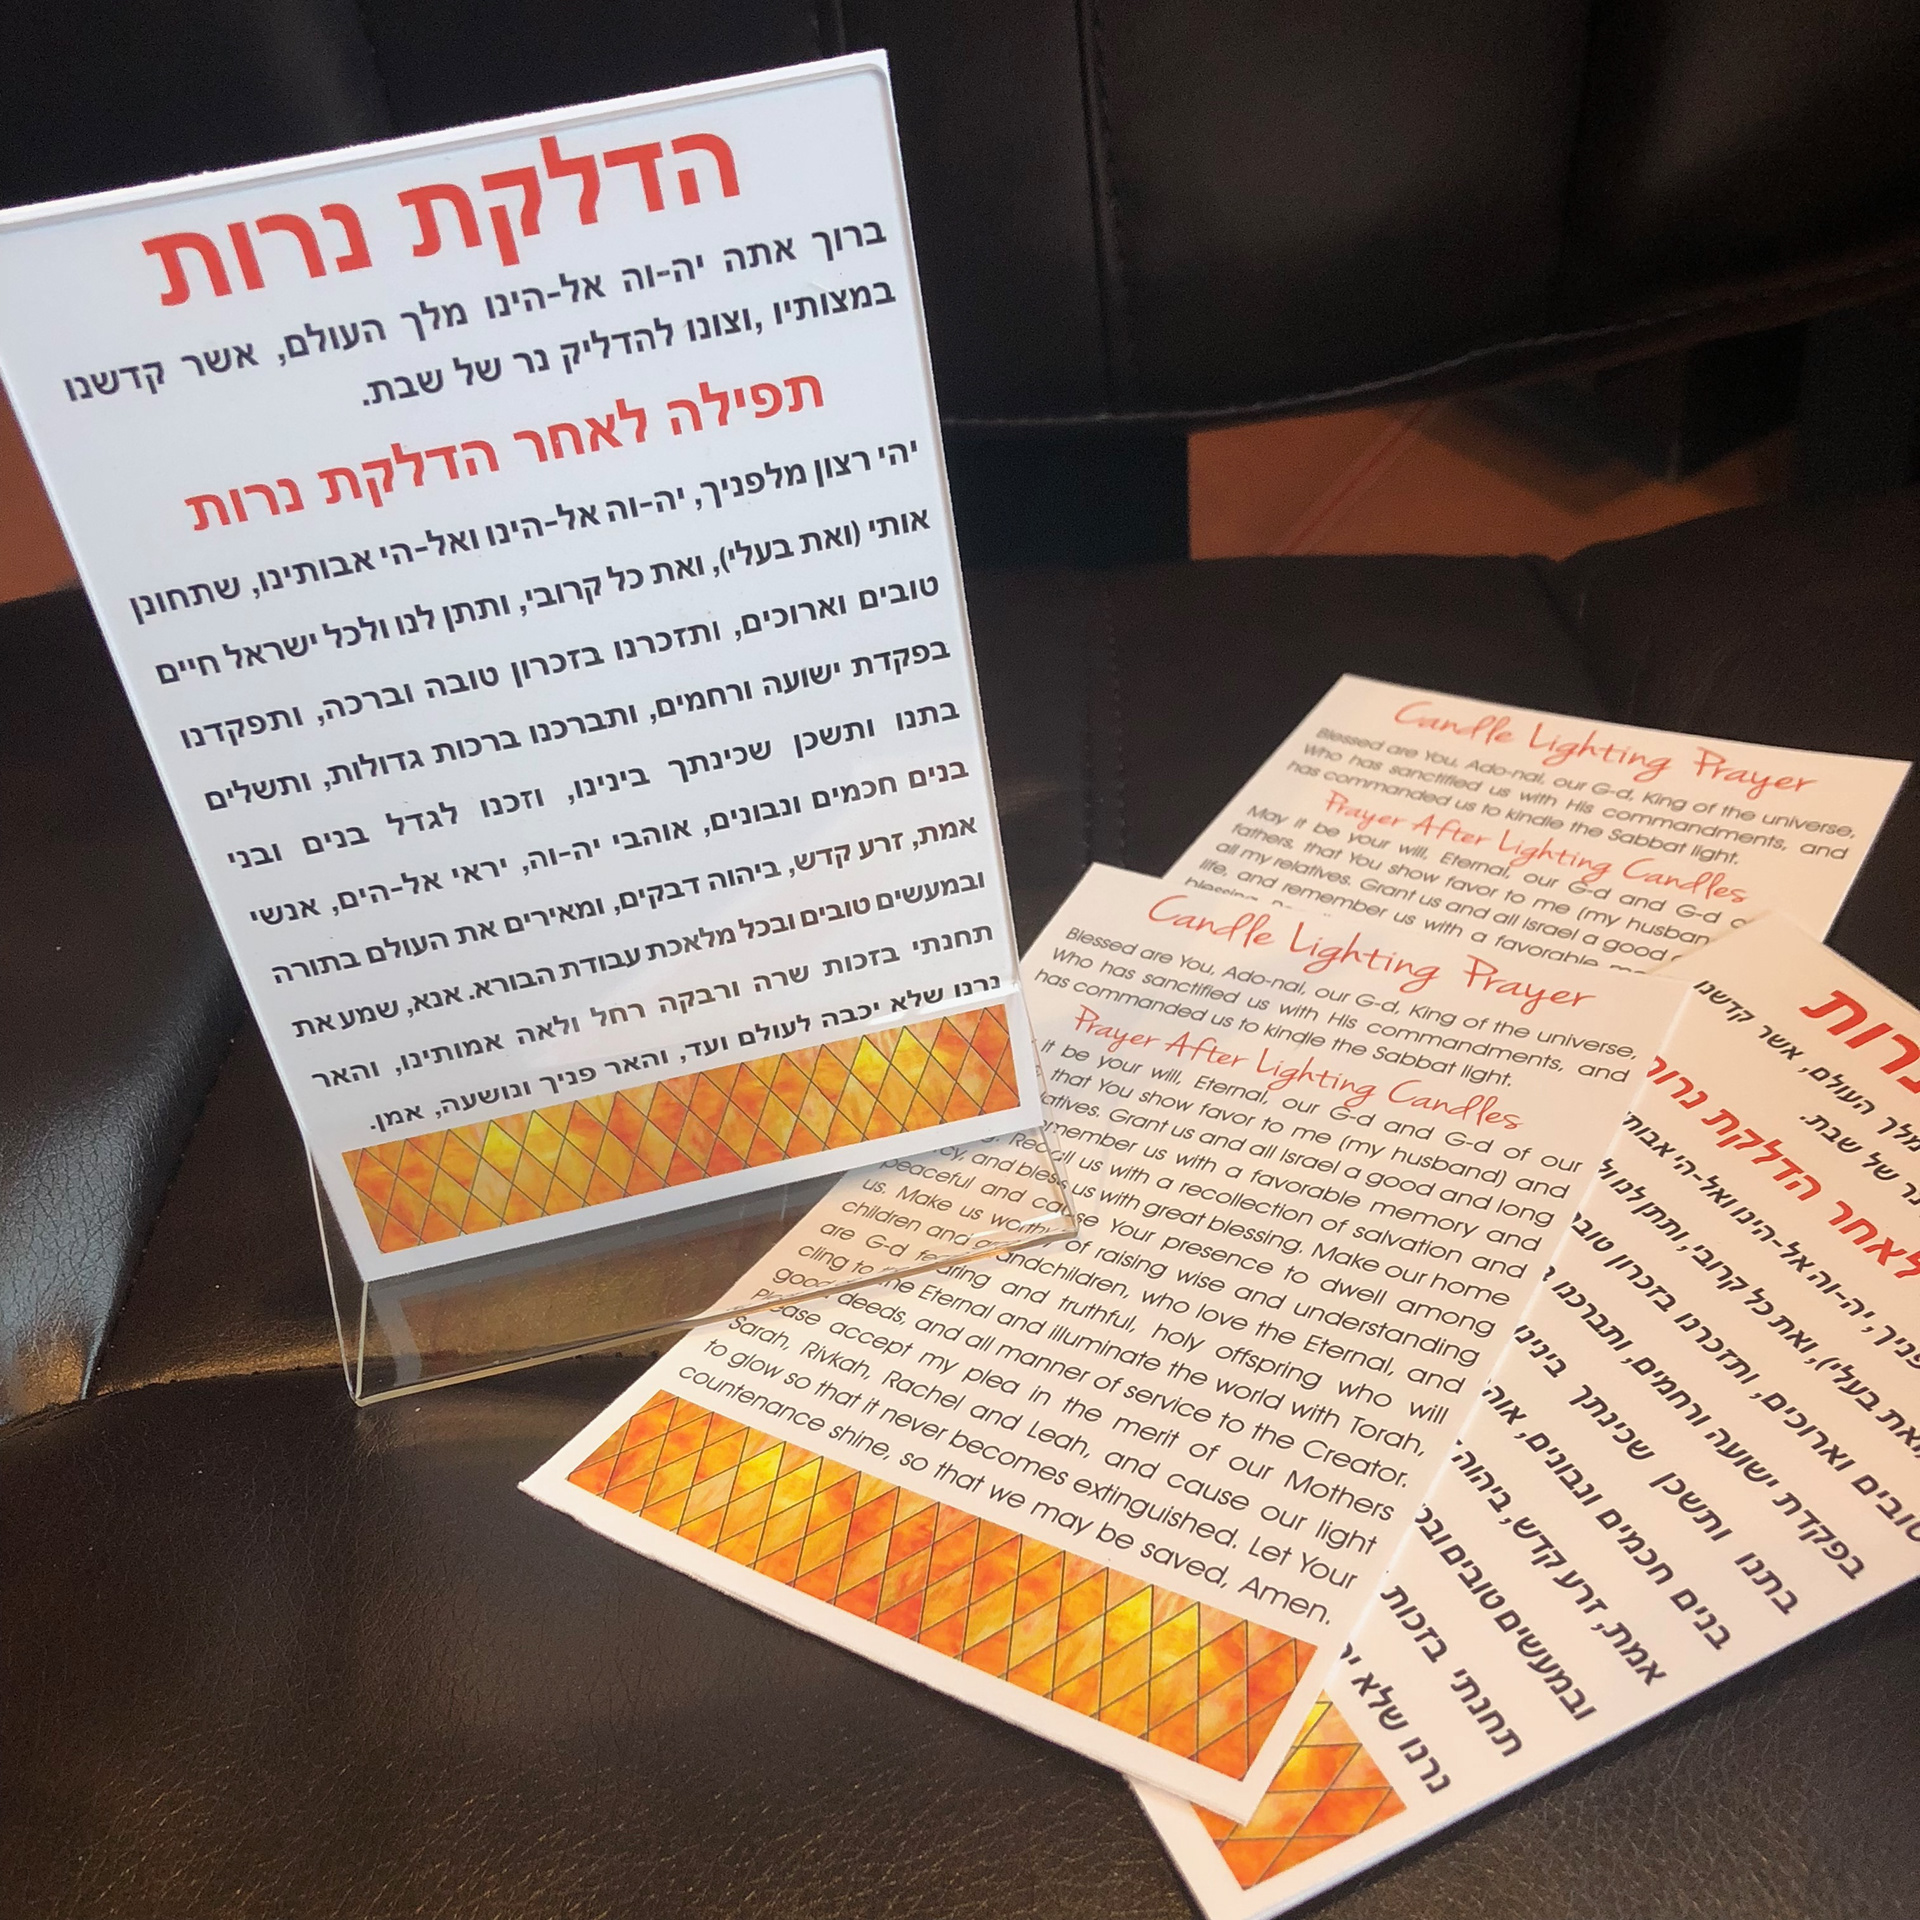 הדלקת נרות
ברוך אתה יה-וה אל-הינו מלך העולם, אשר קדשנו
במצותיו ,וצונו להדליק נר של שבת.
תפילה לאחר הדלקת נרות
יהי רצון מלפניך, יה-וה אל-הינו ואל-הי אבותינו, שתחונן
אותי (ואת בעלי), ואת כל קרובי, ותתן לנו ולכל ישראל חיים
טובים וארוכים, ותזכרנו בזכרון טובה וברכה, ותפקדנו
בפקדת ישועה ורחמים, ותברכנו ברכות גדולות, ותשלים
בתנו ותשכן שכינתך בינינו, וזכנו לגדל בנים ובני
בנים חכמים ונבונים, אוהבי יה-וה, יראי אל-הים, אנשי
אמת, זרע קדש, ביהוה דבקים, ומאירים את העולם בתורה
ובמעשים טובים ובכל מלאכת עבודת הבורא. אנא, שמע את
תחנתי בזכות שרה ורבקה רחל ולאה אמותינו, והאר
נרנו שלא יכבה לעולם ועד, והאר פניך ונושעה, אמן.
Candle Lighting Prayer
Blessed are You, Ado-nai, our G-d, King of the universe,
Who has sanctified us with His commandments, and
has commanded us to kindle the Sabbat light.
Prayer After Lighting Candles
May it be your will, Eternal, our G-d and G-d
fathers, that You show favor to me (my husban
all my relatives. Grant us and all Israel a good
life, and remember us with a favorable
Candle Lighting Prayer
Blessed are You, Ado-nai, our G-d, King of the universe,
Who has sanctified us with His commandments, and
has commanded us to kindle the Sabbat light.
Prayer After Lighting Candles
it be your will, Eternal, our G-d and G-d of our
that You show favor to me (my husband) and
latives. Grant us and all Israel a good and long
member us with a favorable memory and
Recall us with a recollection of salvation and
cy, and bless us with great blessing. Make our home
peaceful and cause Your presence to dwell among
us. Make us worthy of raising wise and understanding
children and grandchildren, who love the Eternal, and
are G-d fearing and truthful, holy offspring who will
cling to the Eternal and illuminate the world with Torah,
good deeds, and all manner of service to the Creator.
Please accept my plea in the merit of our Mothers
Sarah, Rivkah, Rachel and Leah, and cause our light
to glow so that it never becomes extinguished. Let Your
countenance shine, so that we may be saved, Amen.
נרות
מלך העולם, אשר קדשנו
נר של שבת.
לאחר הדלקת נרות
פניך, יה-וה אל-הינו ואל-הי אבות
ואת בעלי), ואת כל קרובי, ותתן לנו ול
טובים וארוכים, ותזכרנו בזכרון טוב
בפקדת ישועה ורחמים, ותברכנו
בתנו ותשכן שכינתך בינינ
בנים חכמים ונבונים, אוה
אמת, זרע קדש, ביהוה
ובמעשים טובים ובכ
תחנתי בזכות
נרנו שלא י